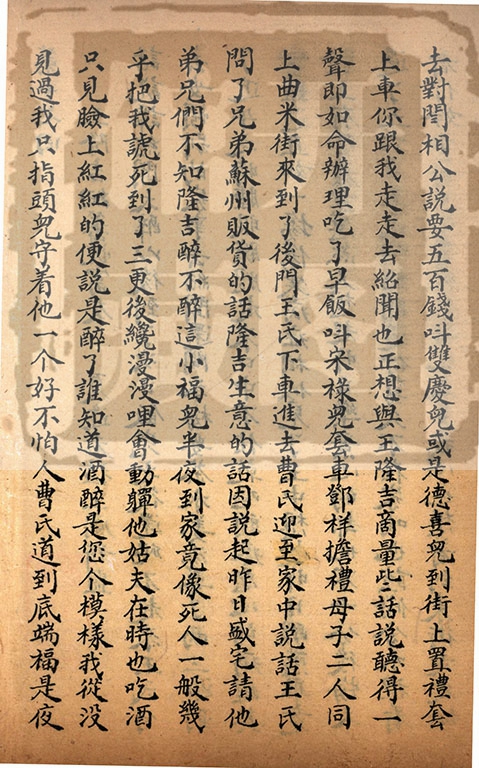 去對閻相公說要五百錢叫雙慶兒或是德喜兒到街上置禮套
上車你跟我走走去紹聞也正想與王隆吉商量些話說聽得一
聲即如命辦理吃了早飯叫宋祿兒套車鄧祥擔禮母子二人同
上曲米街來到了後門王氏下車進去曹氏迎至家中說話王氏
問了兄弟蘇州販貨的話隆吉生意的話因說起昨日盛宅請他
弟兄們不知隆吉醉不醉這小福兒半夜到家竟像死人一般幾
乎把我諕死到了三更後纔漫漫哩會動軃他姑夫在時也吃酒
只見臉上紅紅的便說是醉了誰知道酒醉是您个模樣我從沒
見過我只指頭兒守着他一个好不怕人曹氏道到底端福是夜